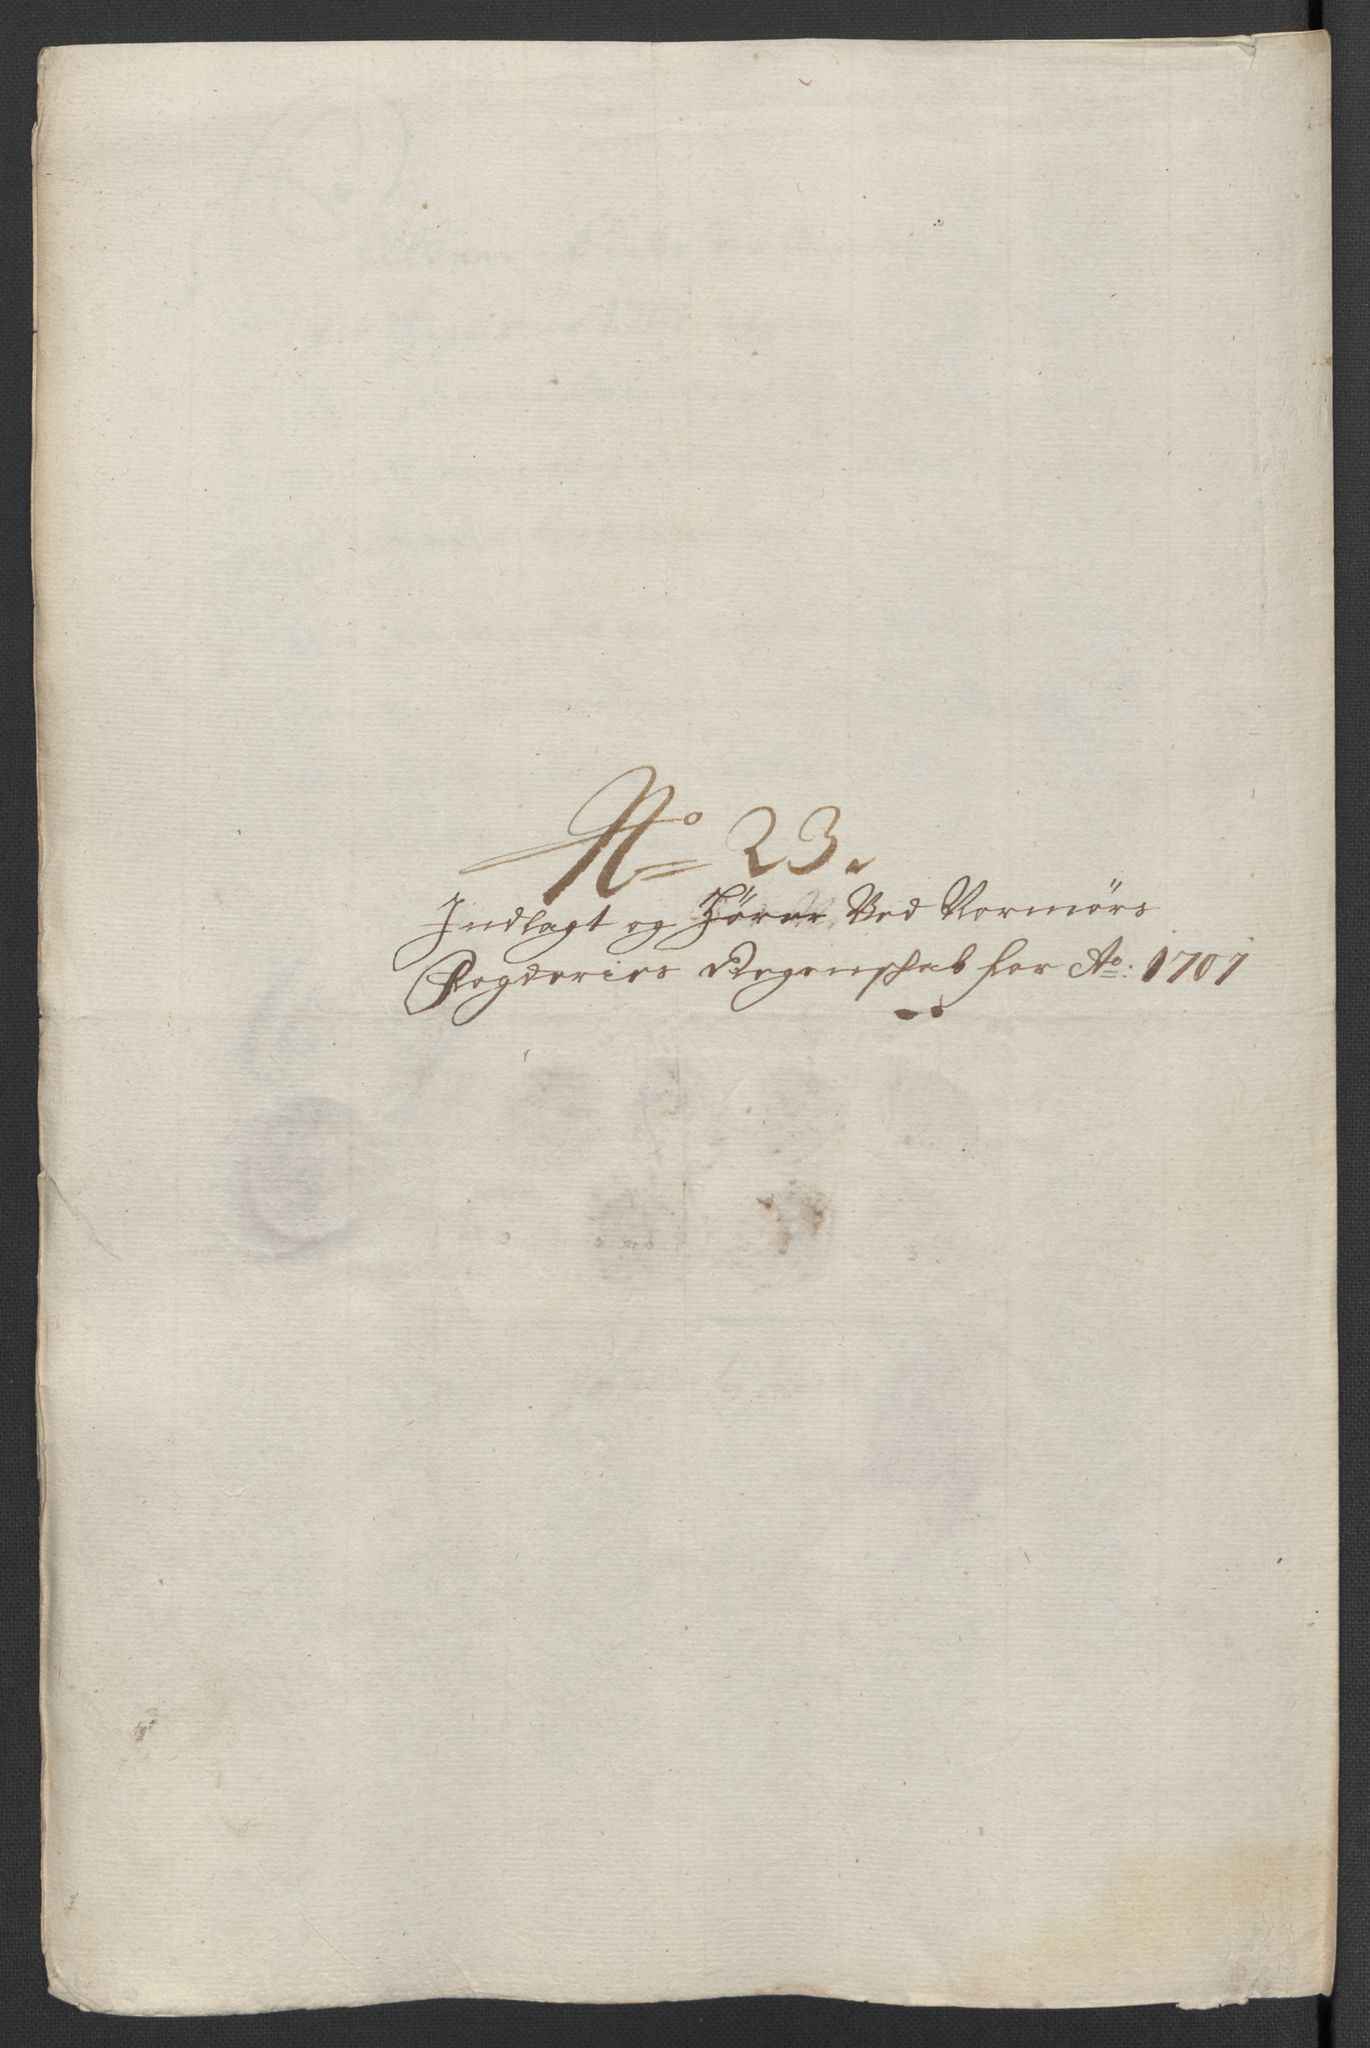 No 23.
Indlagt og Hører Ved Normørs
Fogderies Regenschab for Ao: 1707